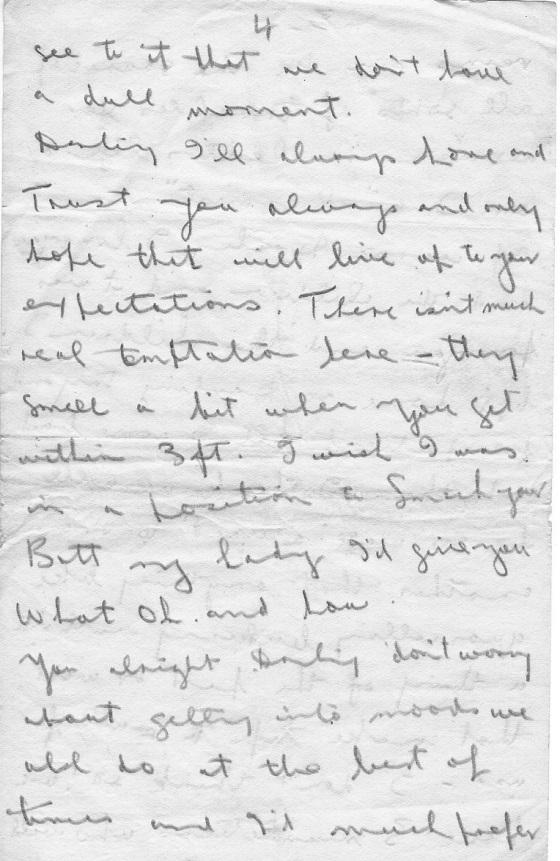 4
see to it that we don't have
a dull moment.
Darling I'll always love and
Trust you always and only
hope that will live up to your
expectations. There isn't much
real temptation here – they
smell a bit when you get
within 3ft. I wish I was
in a position to Smack your
Bott my lady I'd give you
What Oh. and how.
You alright Darling don't worry
about getting into moods we
all do at the best of
times and I'd much prefer